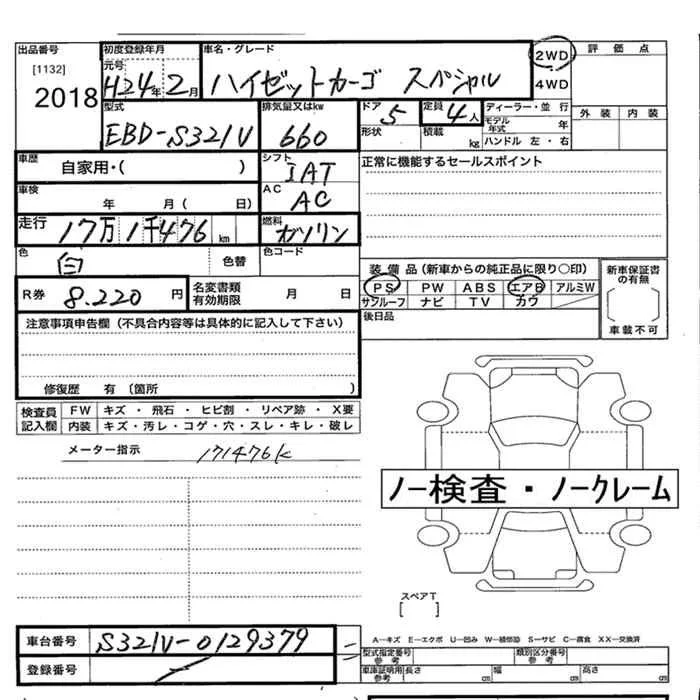 出品番号 [1132] 2018
初度登録年月 元号 H24年2月
車名・グレード ハイゼットカーゴ スペシャル
2WD 4WD
評価点 外装 内装
型式 EBD-S321V
排気量又はkw 660
ドア 5 形状
定員 4人 積載 kg
ディーラー・並行 モデル年式 年 ハンドル 左・右
車歴 自家用・( )
シフト IAT
AC AC
正常に機能するセールスポイント
車検 年 月( 日)
走行 17万1千476km
燃料 ガソリン
色 白 色替
色コード
R券 8.220円
名変書類有効期限 月 日
装備品(新車からの純正品に限り○印)
PS PW ABS エアB アルミW
サンルーフ ナビ TV カワ
新車保証書の有無 車載不可
後日品
注意事項申告欄(不具合内容等は具体的に記入して下さい)
修復歴 有〔箇所 〕
検査員記入欄 FW キズ・飛石・ヒビ割・リペア跡・X要
内装 キズ・汚レ・コゲ・穴・スレ・キレ・破レ
メーター指示 171476k
ノー検査・ノークレーム
スペアT [ ]
車台番号 S321V-0129379
登録番号
A―キズ E―エクボ U―凹み W―補修跡 S―サビ C―腐食 XX―交換済
型式指定番号 参考 類別区分番号 参考
車庫証明用 参考 長さ cm 幅 cm 高さ cm